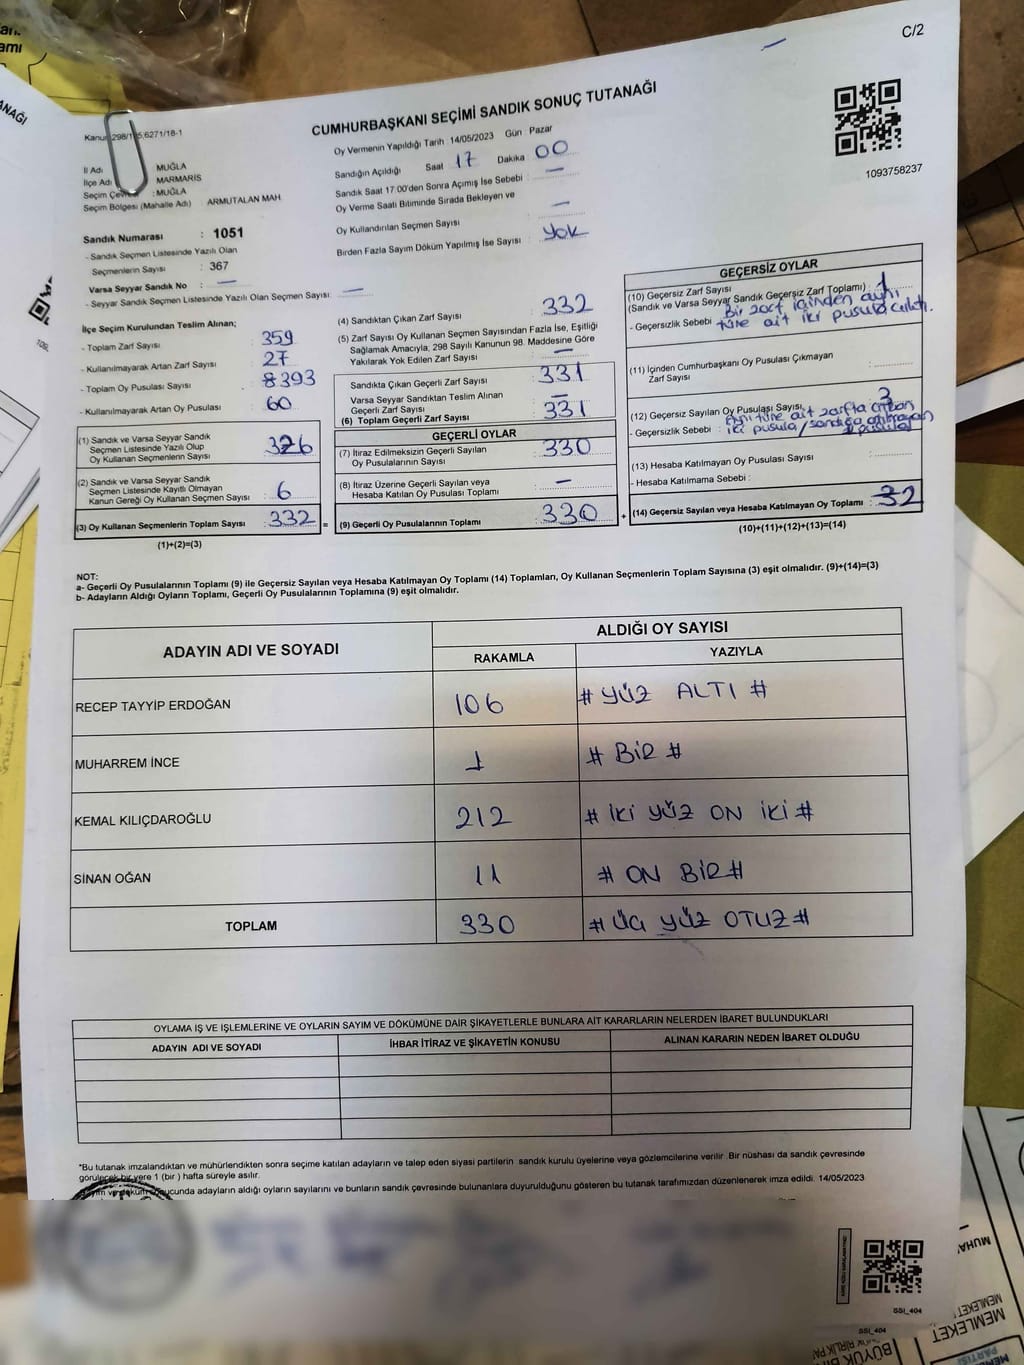 C/2
CUMHURBAŞKANI SEÇİMİ SANDIK SONUÇ TUTANAĞI
1093758237
İl Adı MUĞLA
İlçe Adı MARMARİS
Seçim Çevresi : MUĞLA
Seçim Bölgesi (Mahalle Adı) : ARMUTALAN MAH
Sandık Numarası : 1051
- Sandık Seçmen Listesinde Yazılı Olan
Seçmenlerin Sayısı : 367
Varsa Seyyar Sandık No : —
- Seyyar Sandık Seçmen Listesinde Yazılı Olan Seçmen Sayısı: —
Oy Vermenin Yapıldığı Tarih 14/05/2023 Gün Pazar
Sandığın Açıldığı Saat 17 Dakika 00
Sandık Saat 17:00'den Sonra Açımış İse Sebebi : —
Oy Verme Saati Bitiminde Sırada Bekleyen ve
Oy Kullandırılan Seçmen Sayısı : —
Birden Fazla Sayım Döküm Yapılmış İse Sayısı : Yok
İlçe Seçim Kurulundan Teslim Alınan;
- Toplam Zarf Sayısı : 359
- Kullanılmayarak Artan Zarf Sayısı : 27
- Toplam Oy Pusulası Sayısı : 393
- Kullanılmayarak Artan Oy Pusulası : 60
(1) Sandık ve Varsa Seyyar Sandık
Seçmen Listesinde Yazılı Olup
Oy Kullanan Seçmenlerin Sayısı : 326
(2) Sandık ve Varsa Seyyar Sandık
Seçmen Listesinde Kayıtlı Olmayan
Kanun Gereği Oy Kullanan Seçmen Sayısı : 6
(3) Oy Kullanan Seçmenlerin Toplam Sayısı : 332 =
(1)+(2)=(3)
(4) Sandıktan Çıkan Zarf Sayısı : 332
(5) Zarf Sayısı Oy Kullanan Seçmen Sayısından Fazla İse, Eşitliği
Sağlamak Amacıyla, 298 Sayılı Kanunun 98. Maddesine Göre
Yakılarak Yok Edilen Zarf Sayısı : —
Sandıkta Çıkan Geçerli Zarf Sayısı : 331
Varsa Seyyar Sandıktan Teslim Alınan
Geçerli Zarf Sayısı : —
(6) Toplam Geçerli Zarf Sayısı : 331
GEÇERLİ OYLAR
(7) İtiraz Edilmeksizin Geçerli Sayılan
Oy Pusulalarının Sayısı : 330
(8) İtiraz Üzerine Geçerli Sayılan veya
Hesaba Katılan Oy Pusulası Toplamı : —
(9) Geçerli Oy Pusulalarının Toplamı : 330 +
GEÇERSİZ OYLAR
(10) Geçersiz Zarf Sayısı
(Sandık ve Varsa Seyyar Sandık Geçersiz Zarf Toplamı) : 1
- Geçersizlik Sebebi : Bir zarf içinden aynı
türe ait iki pusula çıktı.
(11) İçinden Cumhurbaşkanı Oy Pusulası Çıkmayan
Zarf Sayısı :
(12) Geçersiz Sayılan Oy Pusulası Sayısı : 3
- Geçersizlik Sebebi : Aynı türe ait zarfta çıkan
iki pusula/sandığa atılmayan
pusula
(13) Hesaba Katılmayan Oy Pusulası Sayısı :
- Hesaba Katılmama Sebebi :
(14) Geçersiz Sayılan veya Hesaba Katılmayan Oy Toplamı :
(10)+(11)+(12)+(13)=(14)
NOT:
a- Geçerli Oy Pusulalarının Toplamı (9) ile Geçersiz Sayılan veya Hesaba Katılmayan Oy Toplamı (14) Toplamları, Oy Kullanan Seçmenlerin Toplam Sayısına (3) eşit olmalıdır. (9)+(14)=(3)
b- Adayların Aldığı Oyların Toplamı, Geçerli Oy Pusulalarının Toplamına (9) eşit olmalıdır.
ADAYIN ADI VE SOYADI ALDIĞI OY SAYISI
RAKAMLA YAZIYLA
RECEP TAYYİP ERDOĞAN 106 # YÜZ ALTI #
MUHARREM İNCE 1 # BİR #
KEMAL KILIÇDAROĞLU 212 # İKİ YÜZ ON İKİ #
SİNAN OĞAN 11 # ON BİR #
TOPLAM 330 # ÜÇ YÜZ OTUZ #
OYLAMA İŞ VE İŞLEMLERİNE VE OYLARIN SAYIM VE DÖKÜMÜNE DAİR ŞİKAYETLERLE BUNLARA AİT KARARLARIN NELERDEN İBARET BULUNDUKLARI
ADAYIN ADI VE SOYADI İHBAR İTİRAZ VE ŞİKAYETİN KONUSU ALINAN KARARIN NEDEN İBARET OLDUĞU
*Bu tutanak imzalandıktan ve mühürlendikten sonra seçime katılan adayların ve talep eden siyasi partilerin sandık kurulu üyelerine veya gözlemcilerine verilir. Bir nüshası da sandık çevresinde
görülecek bir yere 1 (bir ) hafta süreyle asılır.
Sayım ve döküm sonucunda adayların aldığı oyların sayılarını ve bunların sandık çevresinde bulunanlara duyurulduğunu gösteren bu tutanak tarafımızdan düzenlenerek imza edildi. 14/05/2023
SSİ_404
SSİ_404
MEMLEKET
MEMLEKET